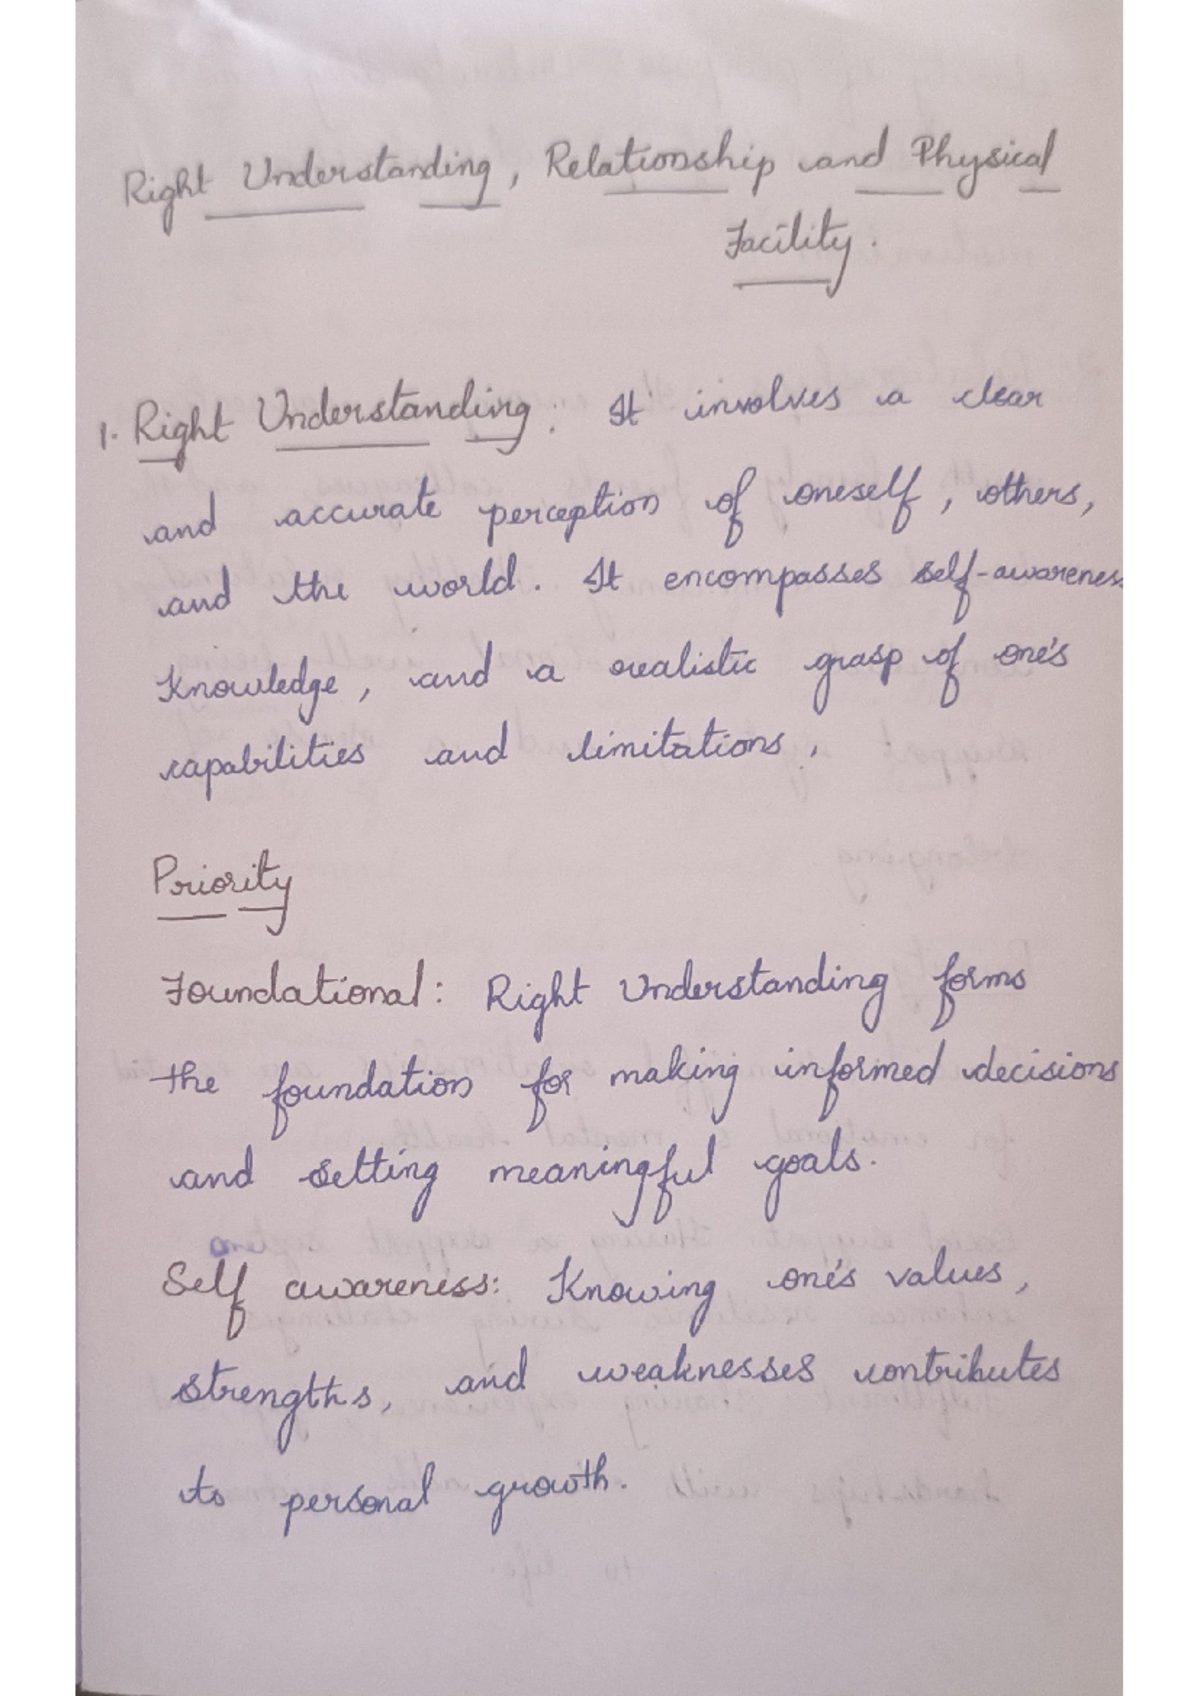 Right Understanding, Relationship and Physical
Facility.
1. Right Understanding: It involves a clear
and accurate perception of oneself, others,
and the world. It encompasses self-awareness
Knowledge, and a realistic grasp of one's
capabilities and limitations.
Priority
Foundational: Right Understanding forms
the foundation for making informed decisions
and setting meaningful goals.
Self awareness: Knowing one's values,
strengths, and weaknesses contributes
to personal growth.